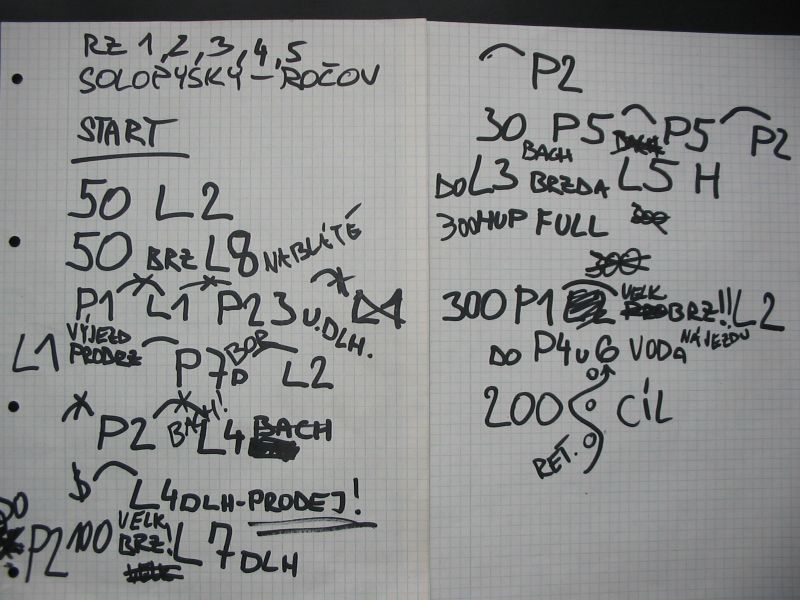 RZ 1, 2, 3, 4, 5
SOLOPYSKY – ROČOV
START
50 L2
50 BRZ L8 NABLÍTÉ
P1 L1 P2 3 U. DLH.
L1 VÝJEZD PRODRŽ P7D BOR L2
P2 BACH! L4 BACH
L4 DLH - PRODEJ!
P2 100 VELK BRZ! L7 DLH
P2
30 P5 P5 P2
BACH
DO L3 BRZDA L5 H
300 HUP FULL
300 P1 VELK BRZ!! L2
DO P4 U 6 VODA NÁJEZDU
200 CÍL
RET.